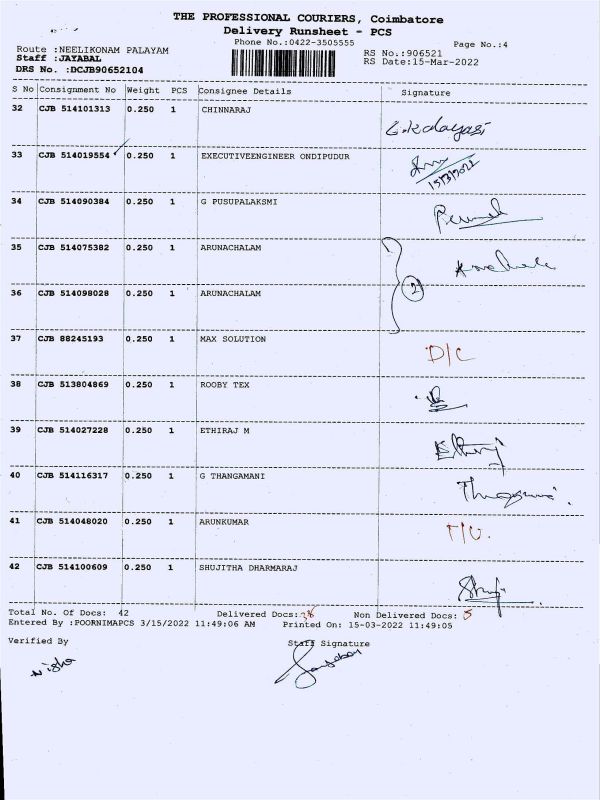 THE PROFESSIONAL COURIERS, Coimbatore
Delivery Runsheet - PCS
Phone No.:0422-3505555
Page No.:4
Route :NEELIKONAM PALAYAM
RS No.:906521
Staff :JAYABAL
RS Date:15-Mar-2022
DRS No. :DCJB90652104
S No Consignment No Weight PCS Consignee Details Signature
32 CJB 514101313 0.250 1 CHINNARAJ
33 CJB 514019554 0.250 1 EXECUTIVEENGINEER ONDIPUDUR
15/3/2022
34 CJB 514090384 0.250 1 G PUSUPALAKSMI
35 CJB 514075382 0.250 1 ARUNACHALAM
2
36 CJB 514098028 0.250 1 ARUNACHALAM
37 CJB 88245193 0.250 1 MAX SOLUTION D/C
38 CJB 513804869 0.250 1 ROOBY TEX
39 CJB 514027228 0.250 1 ETHIRAJ M
40 CJB 514116317 0.250 1 G THANGAMANI
41 CJB 514048020 0.250 1 ARUNKUMAR
42 CJB 514100609 0.250 1 SHUJITHA DHARMARAJ
Total No. Of Docs: 42 Delivered Docs: Non Delivered Docs: 5
Entered By :POORNIMAPCS 3/15/2022 11:49:06 AM Printed On: 15-03-2022 11:49:05
Verified By Staff Signature
Nisha